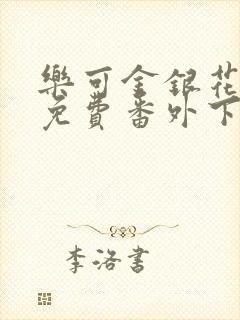 樂可金銀花
免費番外下
李洛書